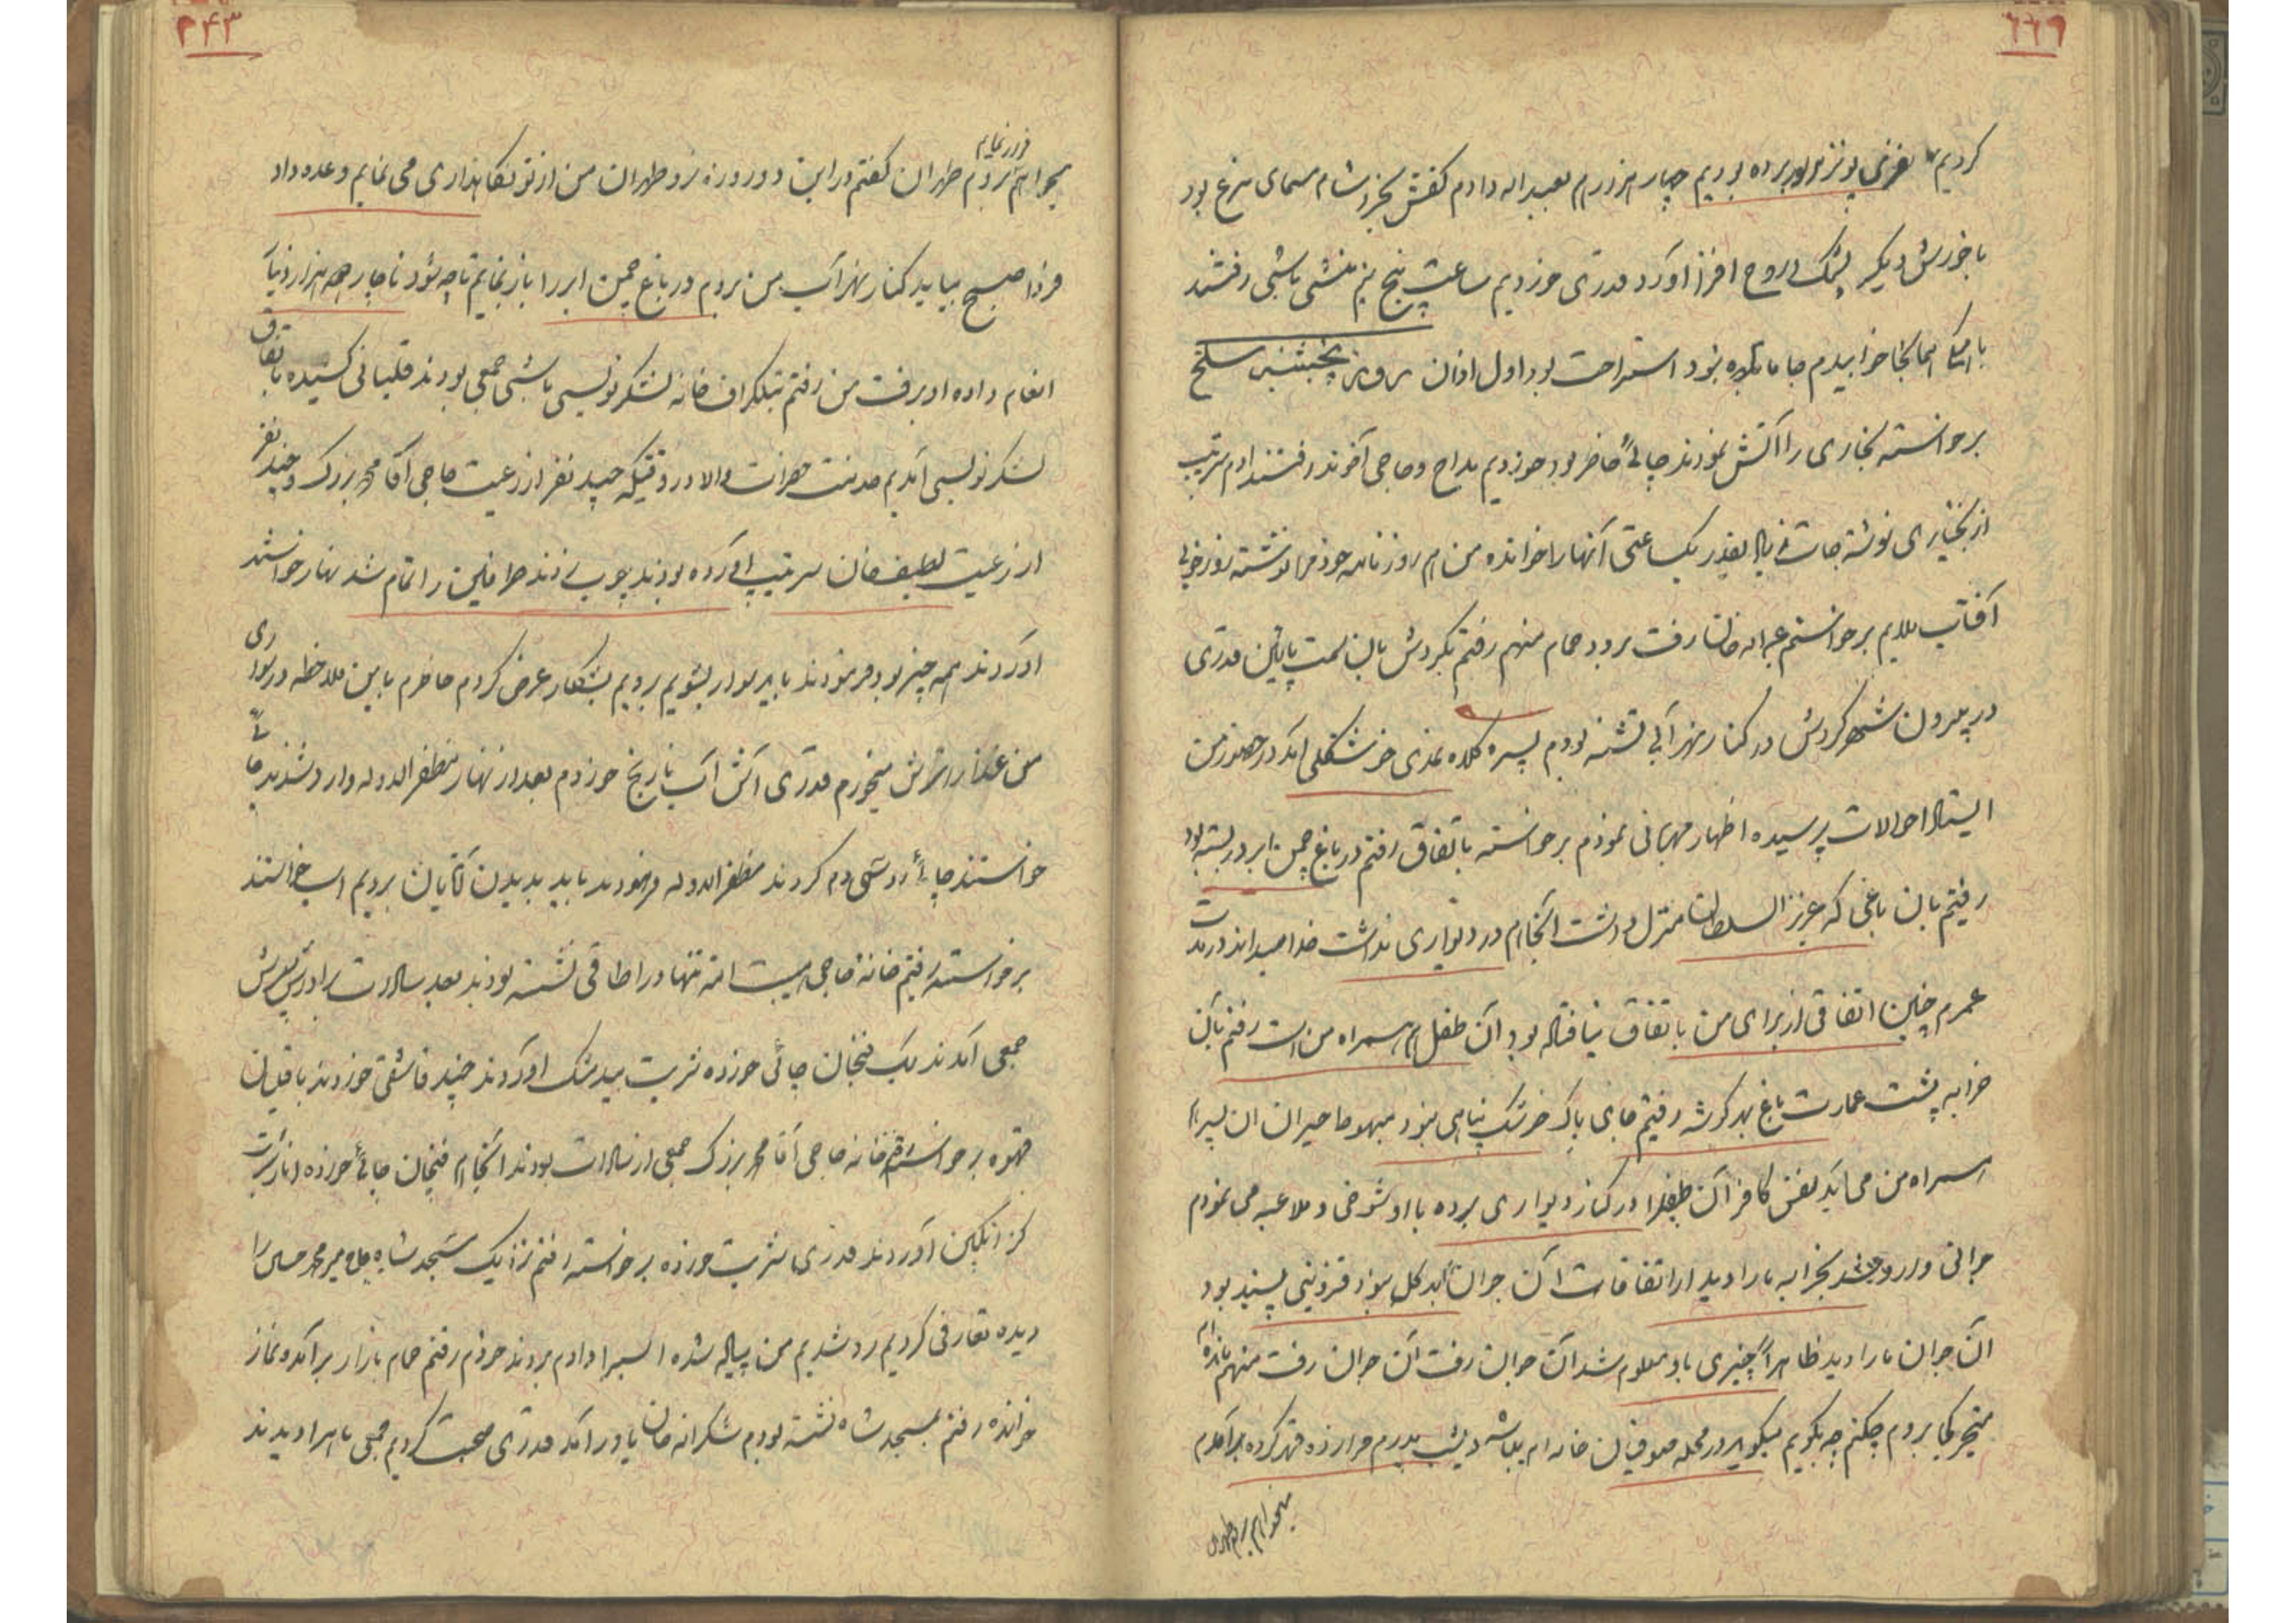 کردیم نفری پونزه برده بودیم چهار هزارم بعبداله دادم کفش بخرد شام مسمای مرغ بود
با خورش دیگر پشمک روح افزا آورد قدری خوردیم ساعت پنج نیم منشی باشی رفتند
همانجا خوابیدم جا ما بود استراحت بود اول اذان روز پنجشنبه سلخ
برخواسته بخاری را آتش نمودند چائی حاضر بود خوردیم مداح و حاجی آخوند رفتند
از بختیاری نوشته جات بقدر یکساعتی آنها را خوانده من هم روزنامه خودم را نوشته روز خوبی
آفتاب ملایم برخواستم عبداله خان رفت برود حمام منهم رفتم بگردش بان سمت پائین قدری
در بیرون شهر گردش در کنار نهر آبی نشسته بودم پسره کلاه نمدی خوشگلی آمد در حضور من
ایستاد احوالات پرسیده اظهار مهربانی نمودم برخواسته باتفاق رفتم در باغ چمن ابر در بسته بود
رفتیم بان باغی که عزیز السلطان منزل داشت آنجا هم در دیواری نداشت خدا میداند در مدت
عمرم چنین اتفاقی از برای من باتفاق نیافتاده بود آن طفل هم همراه من است رفتم بآن
خرابه پشت عمارت باغ بهر گوشه رفتیم جای پاک خوشگ پناهی نبود مبهوط حیران ان پسر هم
همراه من می آید نفس کافر آن طفل را در کنار دیواری برده با او شوخی و ملاعبه می نمودم
جوانی وارد شد بخرابه ما را دید از اتفاقات آن جوان بد گل بود قزوینی پسند بود
آن جوان ما را دید ظاهراً چیزی باو معلوم شد آن جوان رفت آن جوان رفت منهم مانده ام
متحیر کجا بروم چکنم چه بگویم میگوید در محله صوفیان خانه ام میباشد دیشب پدرم مرا زده قهر کرده بر آمدم
میخواهم بروم طهران
میخواهم بروم طهران گفتم در این دو روزه برو طهران من از تو نگاهداری می نمایم وعده داد
فردا صبح بیاید کنار نهر آب من بروم در باغ چمن ابر را باز نمایم تا چه شود ناچار هزار دینار
انعام داده او برفت من رفتم بتلگراف خانه لشکرنویس باشی جمعی بودند قلیانی کشیده باتفاق
لشکرنویس آمدیم خدمت حضرت والا در وقتیکه چند نفر از رعیت حاجی آقا محمد بزرگ و چند نفر
از رعیت لطیف خان سرتیپ آورده بودند چوب می زدند طرفین را تمام شد نهار خواستند
آوردند همه چیز بود فرمودند باید سوار بشویم برویم بشکار عرض کردم حاضرم باین ملاحظه در سواری
من غذا را ترش میخورم قدری آش آب نارنج خوردم بعد از نهار مظفر الدوله وارد شدند چائی
خواستند چائی دم کردند مظفر الدوله فرمودند باید بدیدن آقایان برویم اسب خواستند
برخواسته رفتیم خانه حاجی تنها در اطاقی نشسته بودند بعد سادات برادرش پسرش
جمعی آمدند یک فنجان چائی خورده شربت بیدمشک آوردند چند قاشقی خوردند با قلیان
قهوه برخواسته رفتم خانه حاجی آقا محمد بزرگ جمعی از سادات بودند آنجا هم فنجان چائی خورده انار شربت
گزانگبین آوردند قدری شربت خورده برخواسته رفتم نزدیک مسجد شاه حاجی میر محمد حسین را
دیده تعارفی کردیم رد شدیم من پیاده شده اسب را دادم بردند خودم رفتم حمام بازار برآمده نماز
خوانده رفتم بمسجد شاه نشسته بودم شکراله خان یاور آمد قدری صحبت کردیم جمعی ما را دیدند